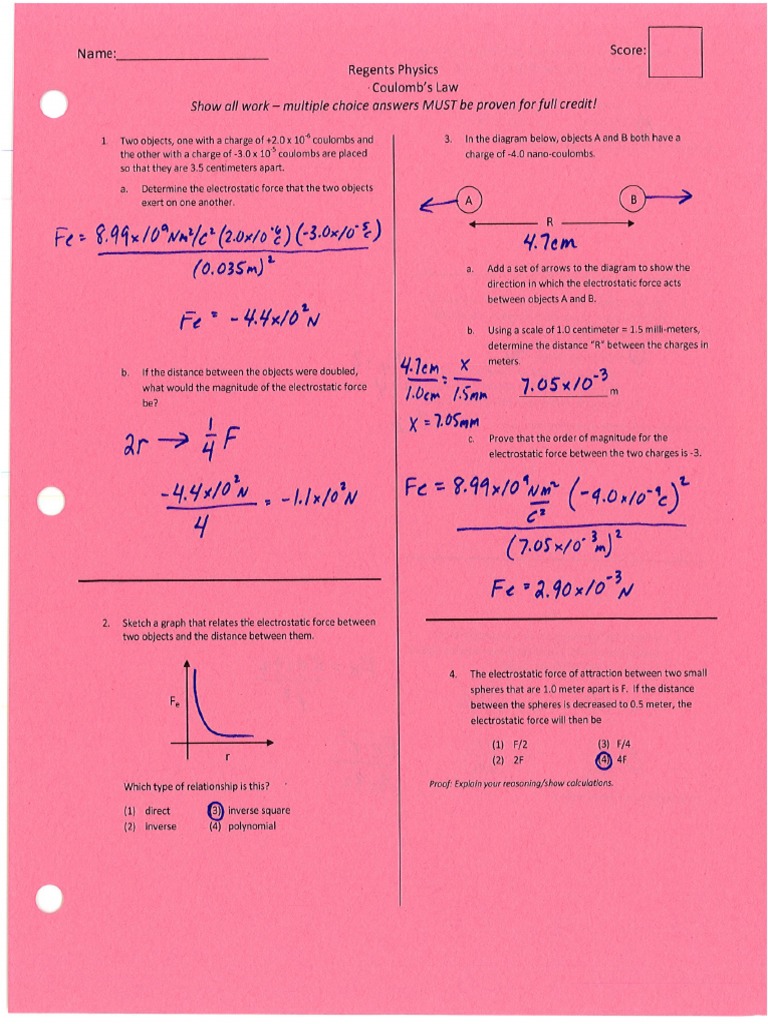 Name:
Score:
Regents Physics
Coulomb's Law
Show all work – multiple choice answers MUST be proven for full credit!
1. Two objects, one with a charge of +2.0 x 10⁻⁶ coulombs and
the other with a charge of -3.0 x 10⁻⁵ coulombs are placed
so that they are 3.5 centimeters apart.
a. Determine the electrostatic force that the two objects
exert on one another.
Fe = 8.99x10⁹Nm²/C² (2.0x10⁻⁶C)(-3.0x10⁻⁵C)
(0.035m)²
Fe = -4.4x10²N
b. If the distance between the objects were doubled,
what would the magnitude of the electrostatic force
be?
2r → 1/4 F
-4.4x10²N
4
= -1.1x10²N
2. Sketch a graph that relates the electrostatic force between
two objects and the distance between them.
Fe
r
Which type of relationship is this?
(1) direct (3) inverse square
(2) inverse (4) polynomial
3. In the diagram below, objects A and B both have a
charge of -4.0 nano-coulombs.
A B
R
4.7cm
a. Add a set of arrows to the diagram to show the
direction in which the electrostatic force acts
between objects A and B.
b. Using a scale of 1.0 centimeter = 1.5 milli-meters,
determine the distance "R" between the charges in
meters.
4.7cm = x
1.0cm 1.5mm
7.05x10⁻³ m
x = 7.05mm
c. Prove that the order of magnitude for the
electrostatic force between the two charges is -3.
Fe = 8.99x10⁹Nm²/C² (-4.0x10⁻⁹C)²
(7.05x10⁻³m)²
Fe = 2.90x10⁻³N
4. The electrostatic force of attraction between two small
spheres that are 1.0 meter apart is F. If the distance
between the spheres is decreased to 0.5 meter, the
electrostatic force will then be
(1) F/2 (3) F/4
(2) 2F (4) 4F
Proof: Explain your reasoning/show calculations.